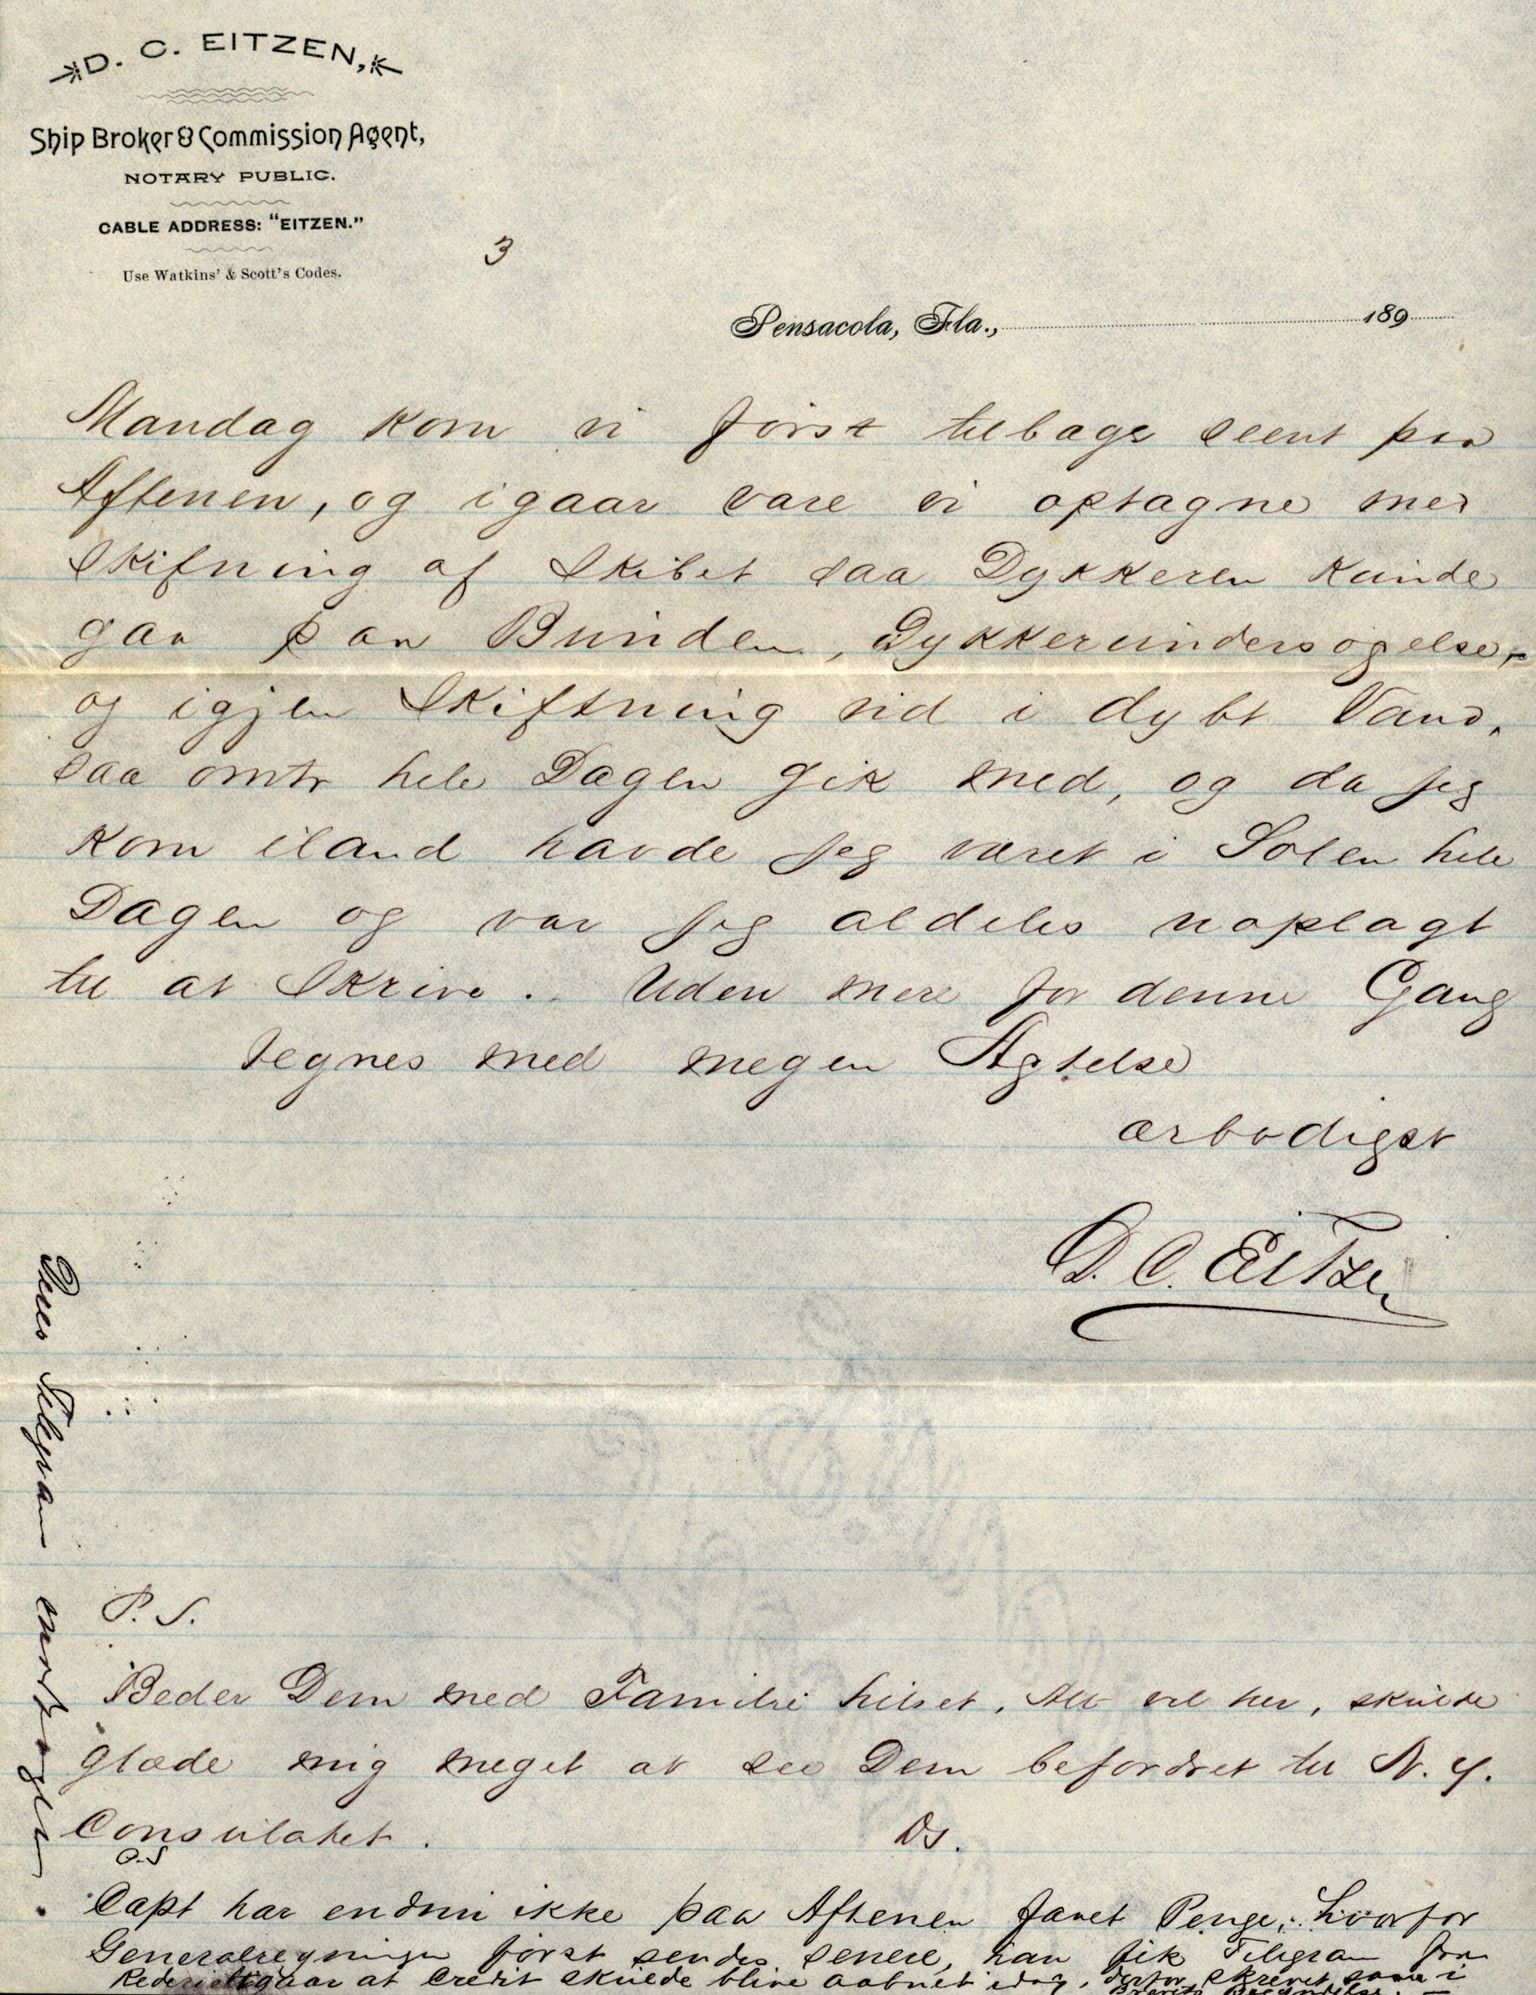 D. C. EITZEN,
Ship Broker & Commission Agent,
NOTARY PUBLIC.
CABLE ADDRESS: "EITZEN."
Use Watkins' & Scott's Codes.
3
Pensacola, Fla., 189
Mandag kom vi først tilbage seent paa
Aftenen, og igaar vare vi optagne med
Skifning af Skibet saa Dykkeren kunde
gaa paa Bunden, Dykkerundersøgelse,
og igjen Skiftning ud i dybt Vand,
saa omtr hele Dagen gik med, og da jeg
kom iland havde jeg været i Solen hele
Dagen og var jeg aldeles uoplagt
til at Skrive. Uden mere for denne Gang
tegnes med megen Agtelse
ærbødigst
D. C. Eitzen
P. S.
Beder Dem med Familie hilset. Alt vel her, skulde
glæde mig meget at see Dem befordret til N. Y.
Consulatet. Ds.
P.S
Capt har endnu ikke paa Aftenen faaet Penge, hvorfor
Generalregningen først sendes senere, han fik Telegram fra
Rederiet igaar at Credit skulde blive aabnet idag, derfor skrevet som i
Brevets Begyndelse. —
Deres Telegram modtagen.